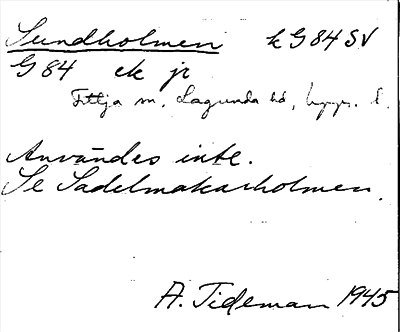 Sundholmen k G 84 SV
G 84 ek jr
Fittja sn, Lagunda hd, Upps. l.
Användes inte.
Se Sadelmakarholmen.
A. Tideman 1945